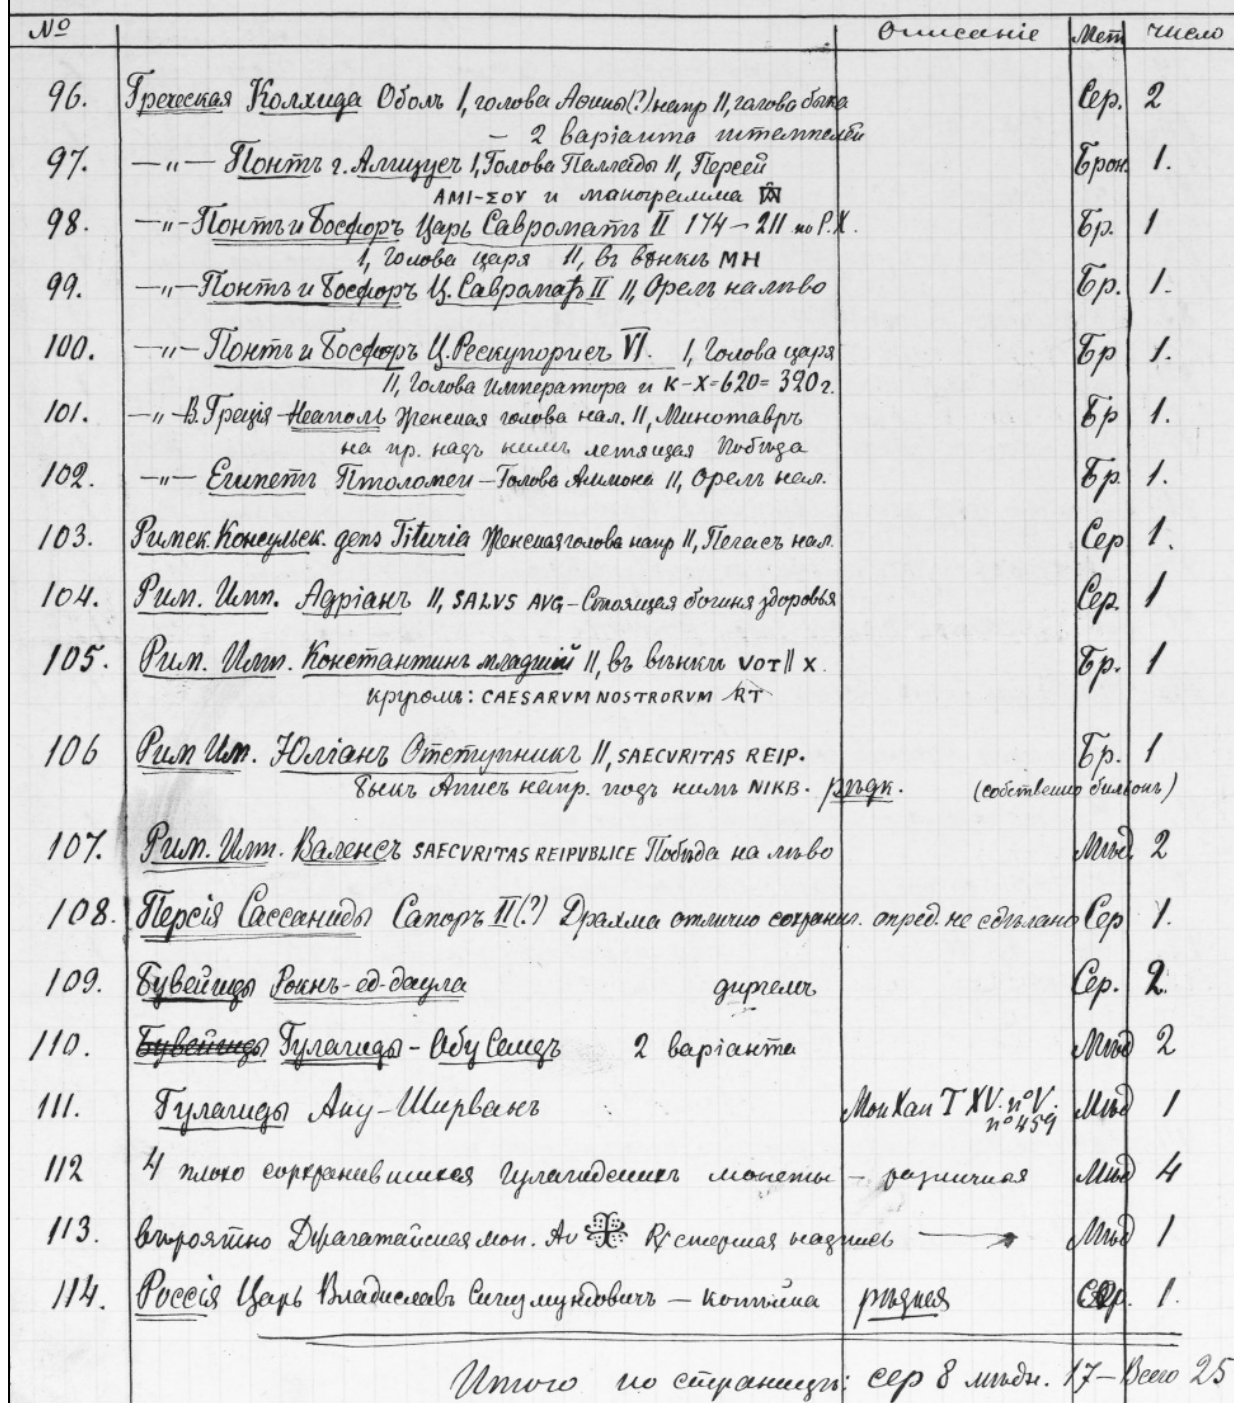 № Описаніе Мет Число
96. Греческая Колхида Оболъ I, голова Аѳины(?) напр II, голова быка Сер. 2
— 2 варіанта штемпелей
97. —"— Понтъ г. Амизусъ I, Голова Паллады II, Персей Брон. 1.
ΑΜΙ-ΣΟΥ и манограмма
98. —"— Понтъ и Босфоръ Царь Савроматъ II 174 — 211 по Р.Х. Бр. 1
I, Голова царя II, въ вѣнкѣ МН
99. —"— Понтъ и Босфоръ Ц. Савроматъ II II, Орелъ налѣво Бр. 1.
100. —"— Понтъ и Босфоръ Ц. Рескупорисъ VI. I, Голова царя Бр 1.
II, Голова Императора и К-Х=620=320 г.
101. —"— В. Греція - Неаполь Женская голова нал. II, Минотавръ Бр 1.
на пр. надъ нимъ летящая Побѣда
102. —"— Египетъ Птоломеи — Голова Аммона II, Орелъ нал. Бр. 1.
103. Римск. Консульск. gens Tituria Женская голова напр II, Пегасъ нал. Сер 1.
104. Рим. Имп. Адріанъ II, SALVS AVG — Стоящая богиня здоровья Сер. 1
105. Рим. Имп. Константинъ младшій II, въ вѣнкѣ VOT II X. Бр. 1
кругомъ: CAESARVM NOSTRORVM RT
106 Рим Им. Юліанъ Отступникъ II, SAECVRITAS REIP. Бр. 1
Быкъ Аписъ напр. подъ нимъ NIKB. рѣдк. (собственно билльонъ)
107. Рим. Имп. Валенсъ SAECVRITAS REIPVBLICE Побѣда на лѣво Мѣд. 2
108. Персія Сассаниды Сапоръ II(?) Драхма отлично сохранил. опред. не сдѣлано Сер 1.
109. Бувейиды Рокнъ-ед-даула диргемъ Сер. 2.
110. Бувейиды Гулагиды - Абу Саидъ 2 варіанта Мѣд 2
111. Гулагиды Ану-Ширванъ Мон Хан Т XV. n° V. Мѣд 1
n° 459
112 4 плохо сохранившихся гулагидскихъ монеты — различная Мѣд 4
113. вѣроятно Джагатайская мон. Av Rv стертая надпись Мѣд 1
114. Россія Царь Владиславъ Сигизмундовичъ — копѣйка рѣдкая Сер. 1.
Итого по страницѣ: сер 8 мѣдн. 17 — Всего 25